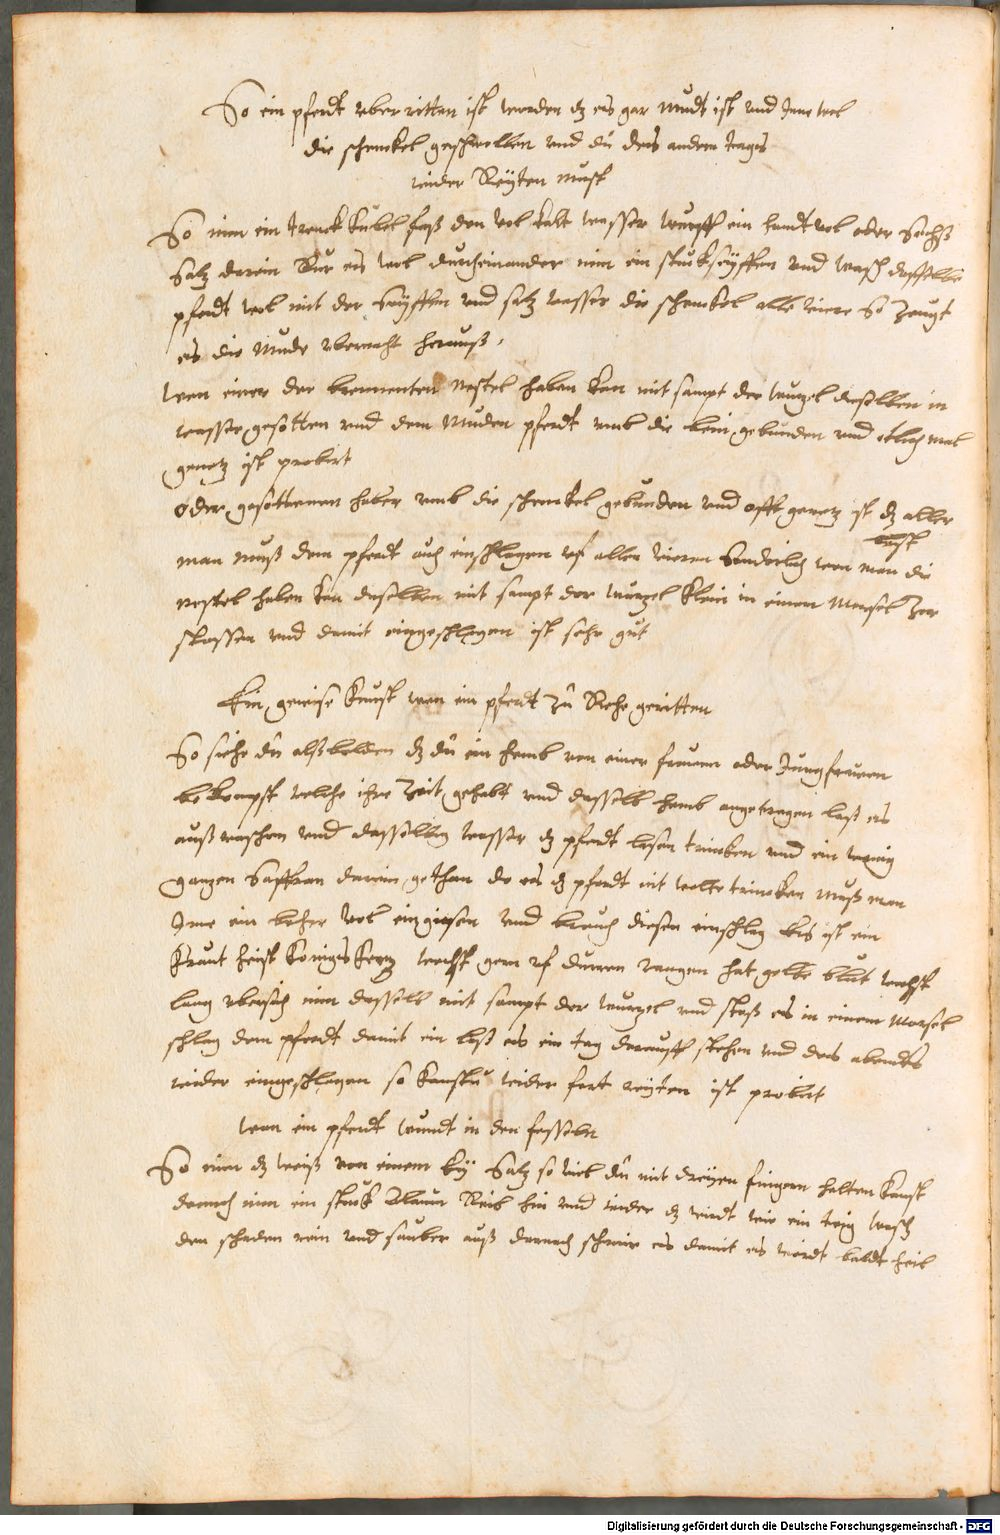 So ein pferdt uber ritten ist worden dz es gar mudt ist und Ime wol
die schenckel geschwollen und du des andern tages
wider Reyten must
So nim ein trenck kubel foß den vol kalt wasser wurff ein handt vol oder Sechß
Saltz darein Rur es wol durcheinander nim ein stuck seyffen und wasch dasselbe
pferdt wol mit der Seyffen und saltz wasser die schenckel alle viere So zeugt
es die Mude uber nacht herauß.
Wen einer der brennenten Nestel haben kan mit sampt der wurtzel dieselben in
wasser gesotten und dem Muden pferdt umb die bein gebunden und etlich mal
genetz ist probirt
Oder gesottenen haber umb die schenckel gebunden und offt genetz ist dz aller
best
man muß dem pferdt auch einschlagen uf allen vieren Sonderlich wen man die
nestel haben kan dieselben mit sampt der wurtzel klein in einem Morsel Zer
stossen und damit eingeschlagen ist sehr gut
Ein gewise kunst wen ein pferdt zu Rehe geritten
So siehe du alßbalden dz du ein hemb von einer frauen oder Jungfrauen
bekompst welche ihre Zeit gehabt und dasselb hemb angetragen laß es
auß waschen und dasselbig wasser dz pferdt lasen trincken und ein wenig
gantzen Saffran darein gethan do es dz pferdt nit wolte trincken muß man
Ime ein beher vol eingiesen und brauch diesen einschlag Es ist ein
kraut heist Konigs Kertz wechst gern uf durren rangen hat gelbe blut wechst
lang ubersich nim dasselb mit sampt der wurtzel und stoß es in einem Morsel
schlag dem pferdt damit ein laß es ein tag darauff stehen und des abendts
wider eingeschlagen so kanstu wider fort reyten ist probirt
Wen ein pferdt wundt in den fesseln
So nim dz weiß von einem Ey Saltz so viel du mit dreyen fingern halten kanst
darnach nim ein stuck Alaun Reib hin und wider dz wirdt wie ein teig wasch
den schaden rein und sauber auß darnach schmir es damit es wirdt baldt heil
Digitalisierung gefördert durch die Deutsche Forschungsgemeinschaft - DFG